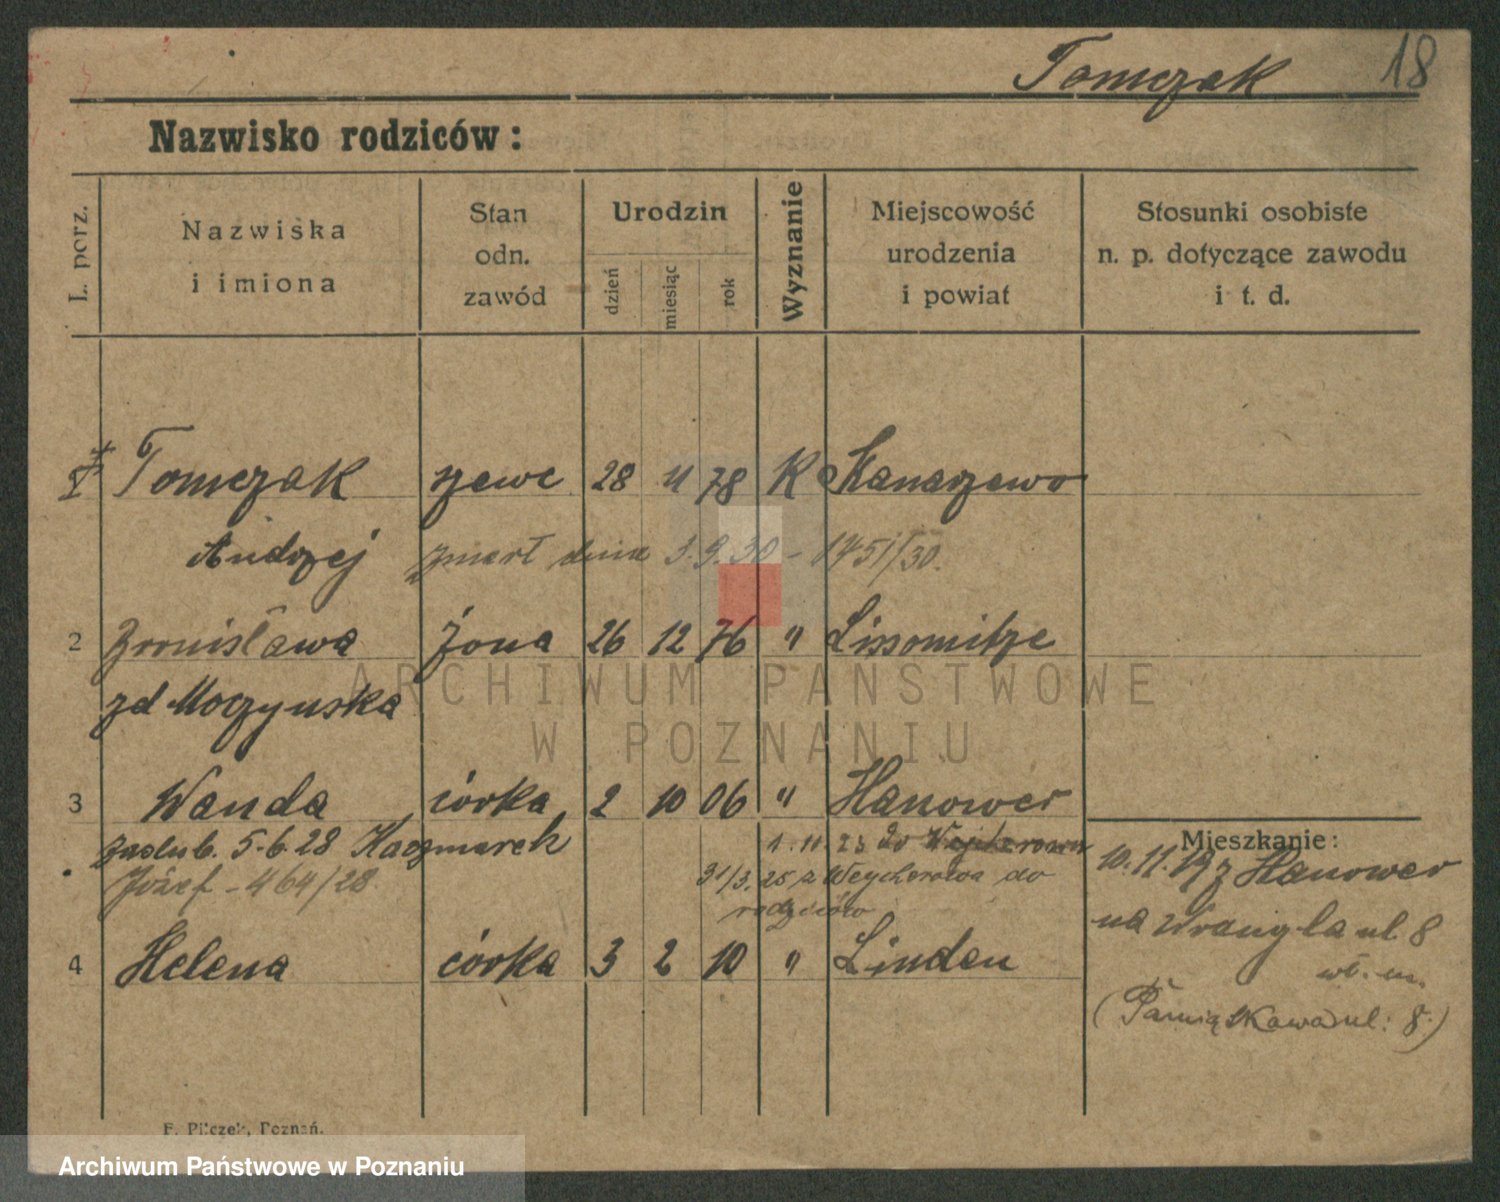 Tomczak 18
Nazwisko rodziców:
L. porz.
Nazwiska
i imiona
Stan
odn.
zawód
Urodzin
dzień
miesiąc
rok
Wyznanie
Miejscowość
urodzenia
i powiat
Stosunki osobiste
n. p. dotyczące zawodu
i t. d.
Tomczak szewc 28 11 78 K Kanarzewo
Andrzej zmarł dnia 3.9.30 - 1451/30.
2 Bronisława żona 26 12 76 " Lissomitze
zd Moczynska
3 Wanda córka 2 10 06 " Hanower
zaslub. 5.6.28 Kaczmarek
Józef - 464/28.
1.11.23 do Wejherowa
31/3.25 z Weycherowa do
rodziców
4 Helena córka 3 2 10 " Linden
Mieszkanie:
10.11.19 z Hanower
na Wrangla ul 8
wł. m.
(Pamiątkowa ul: 8.)
F. Pilczek, Poznań.
ARCHIWUM PAŃSTWOWE
W POZNANIU
Archiwum Państwowe w Poznaniu